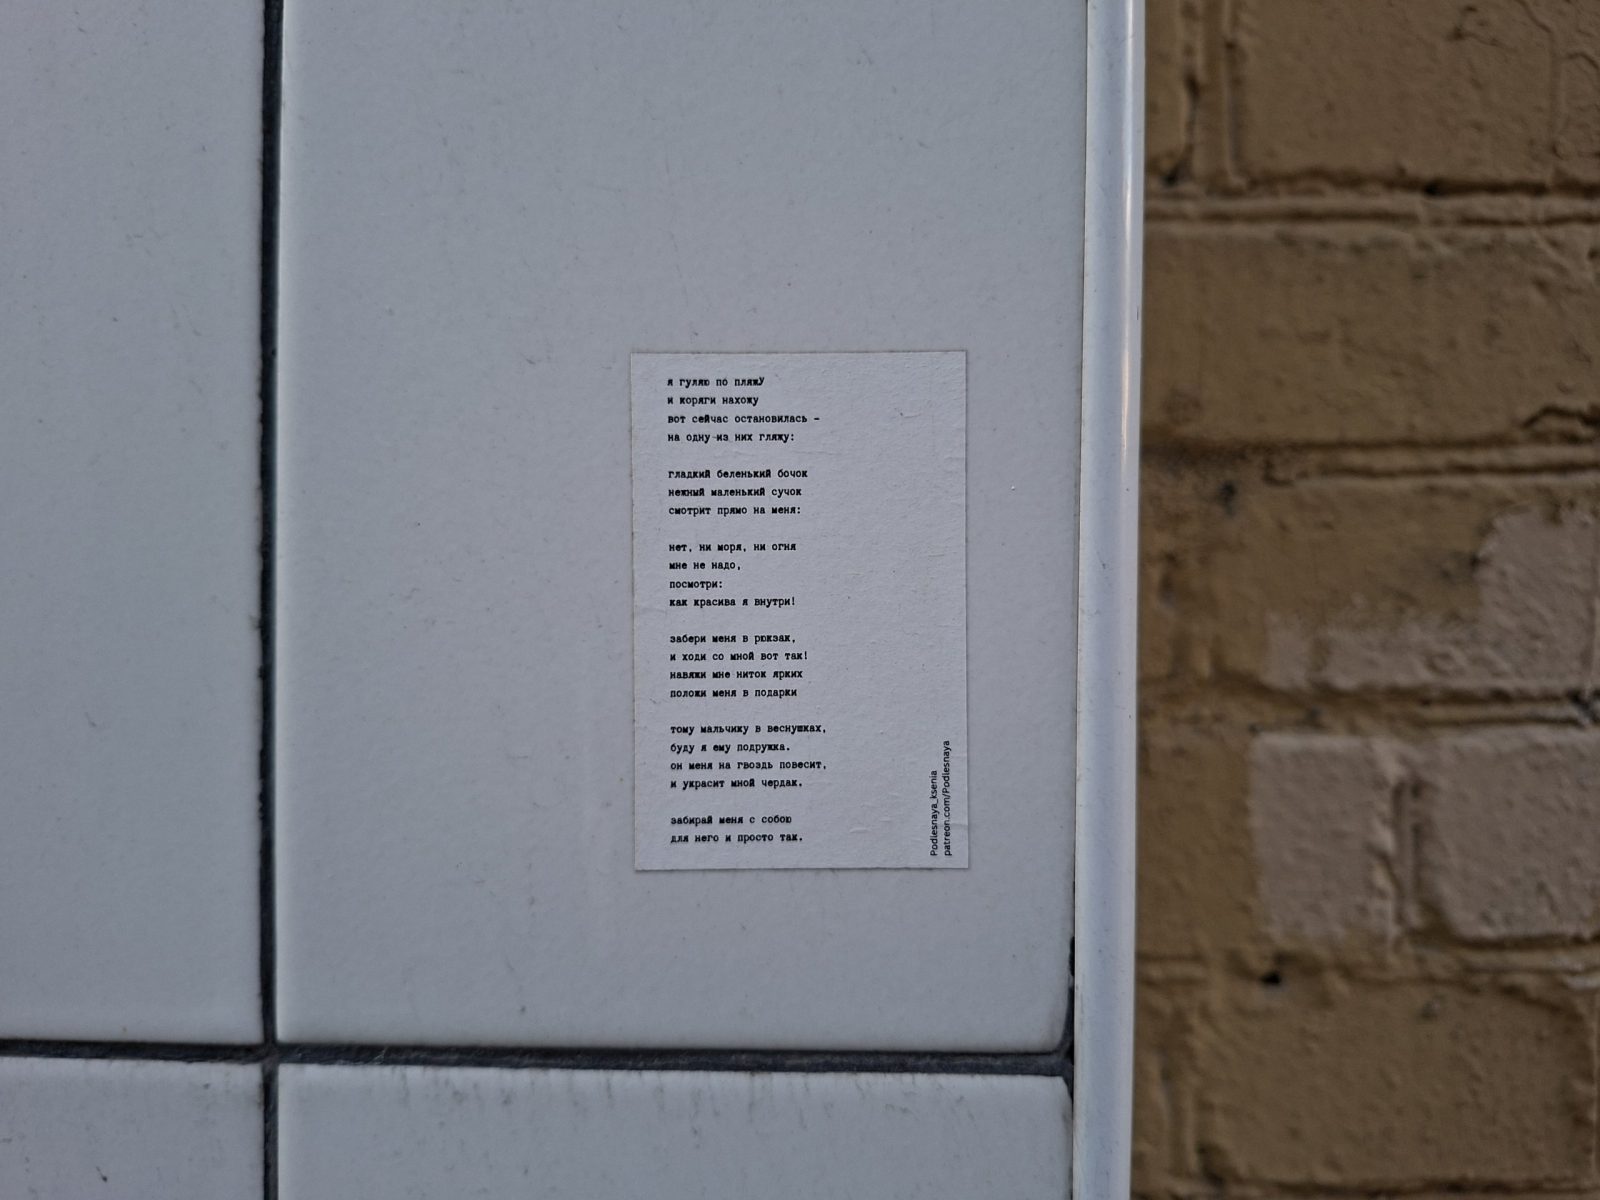 я гуляю по пляжУ
и коряги нахожу
вот сейчас остановилась –
на одну из них гляжу:
гладкий беленький бочок
нежный маленький сучок
смотрит прямо на меня:
нет, ни моря, ни огня
мне не надо,
посмотри:
как красива я внутри!
забери меня в рюкзак,
и ходи со мной вот так!
навяжи мне ниток ярких
положи меня в подарки
тому мальчику в веснушках,
буду я ему подружка.
он меня на гвоздь повесит,
и украсит мной чердак.
забирай меня с собою
для него и просто так.
Podlesnaya_ksenia
patreon.com/Podlesnaya